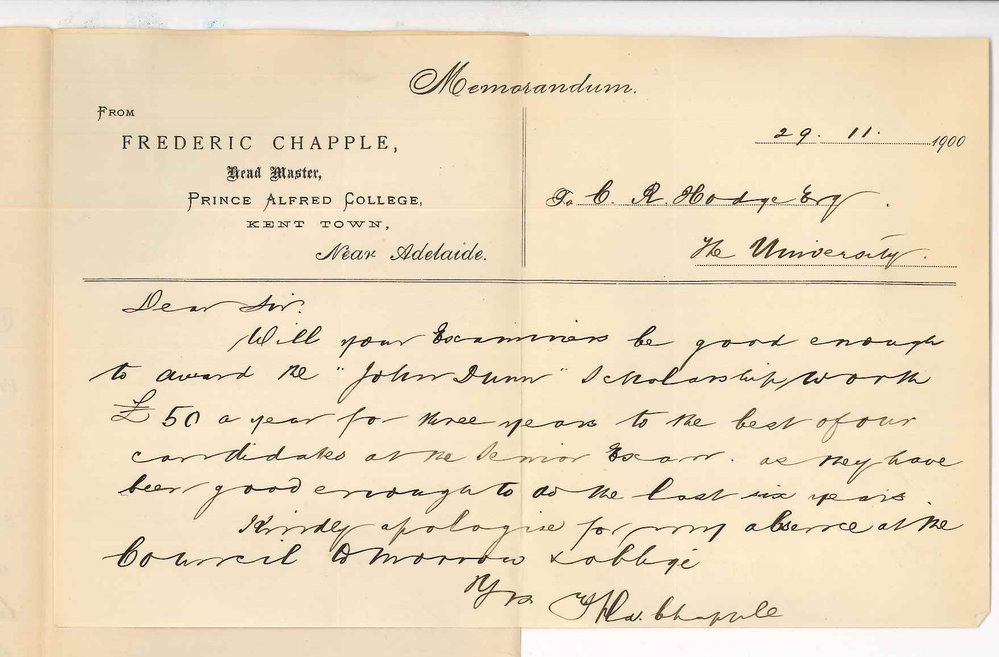 Memorandum.
FROM
FREDERIC CHAPPLE,
Head Master,
PRINCE ALFRED COLLEGE,
KENT TOWN,
Near Adelaide.
29. 11. 1900
To C. R. Hodge Esq.
The University.
Dear Sir.
Will your Examiners be good enough
to award the "John Dunn" Scholarship, worth
£50 a year for three years to the best of our
candidates at the Senior Exam. as they have
been good enough to do the last six years.
Kindly apologise for my absence at the
Council tomorrow & oblige
Yrs. Chapple